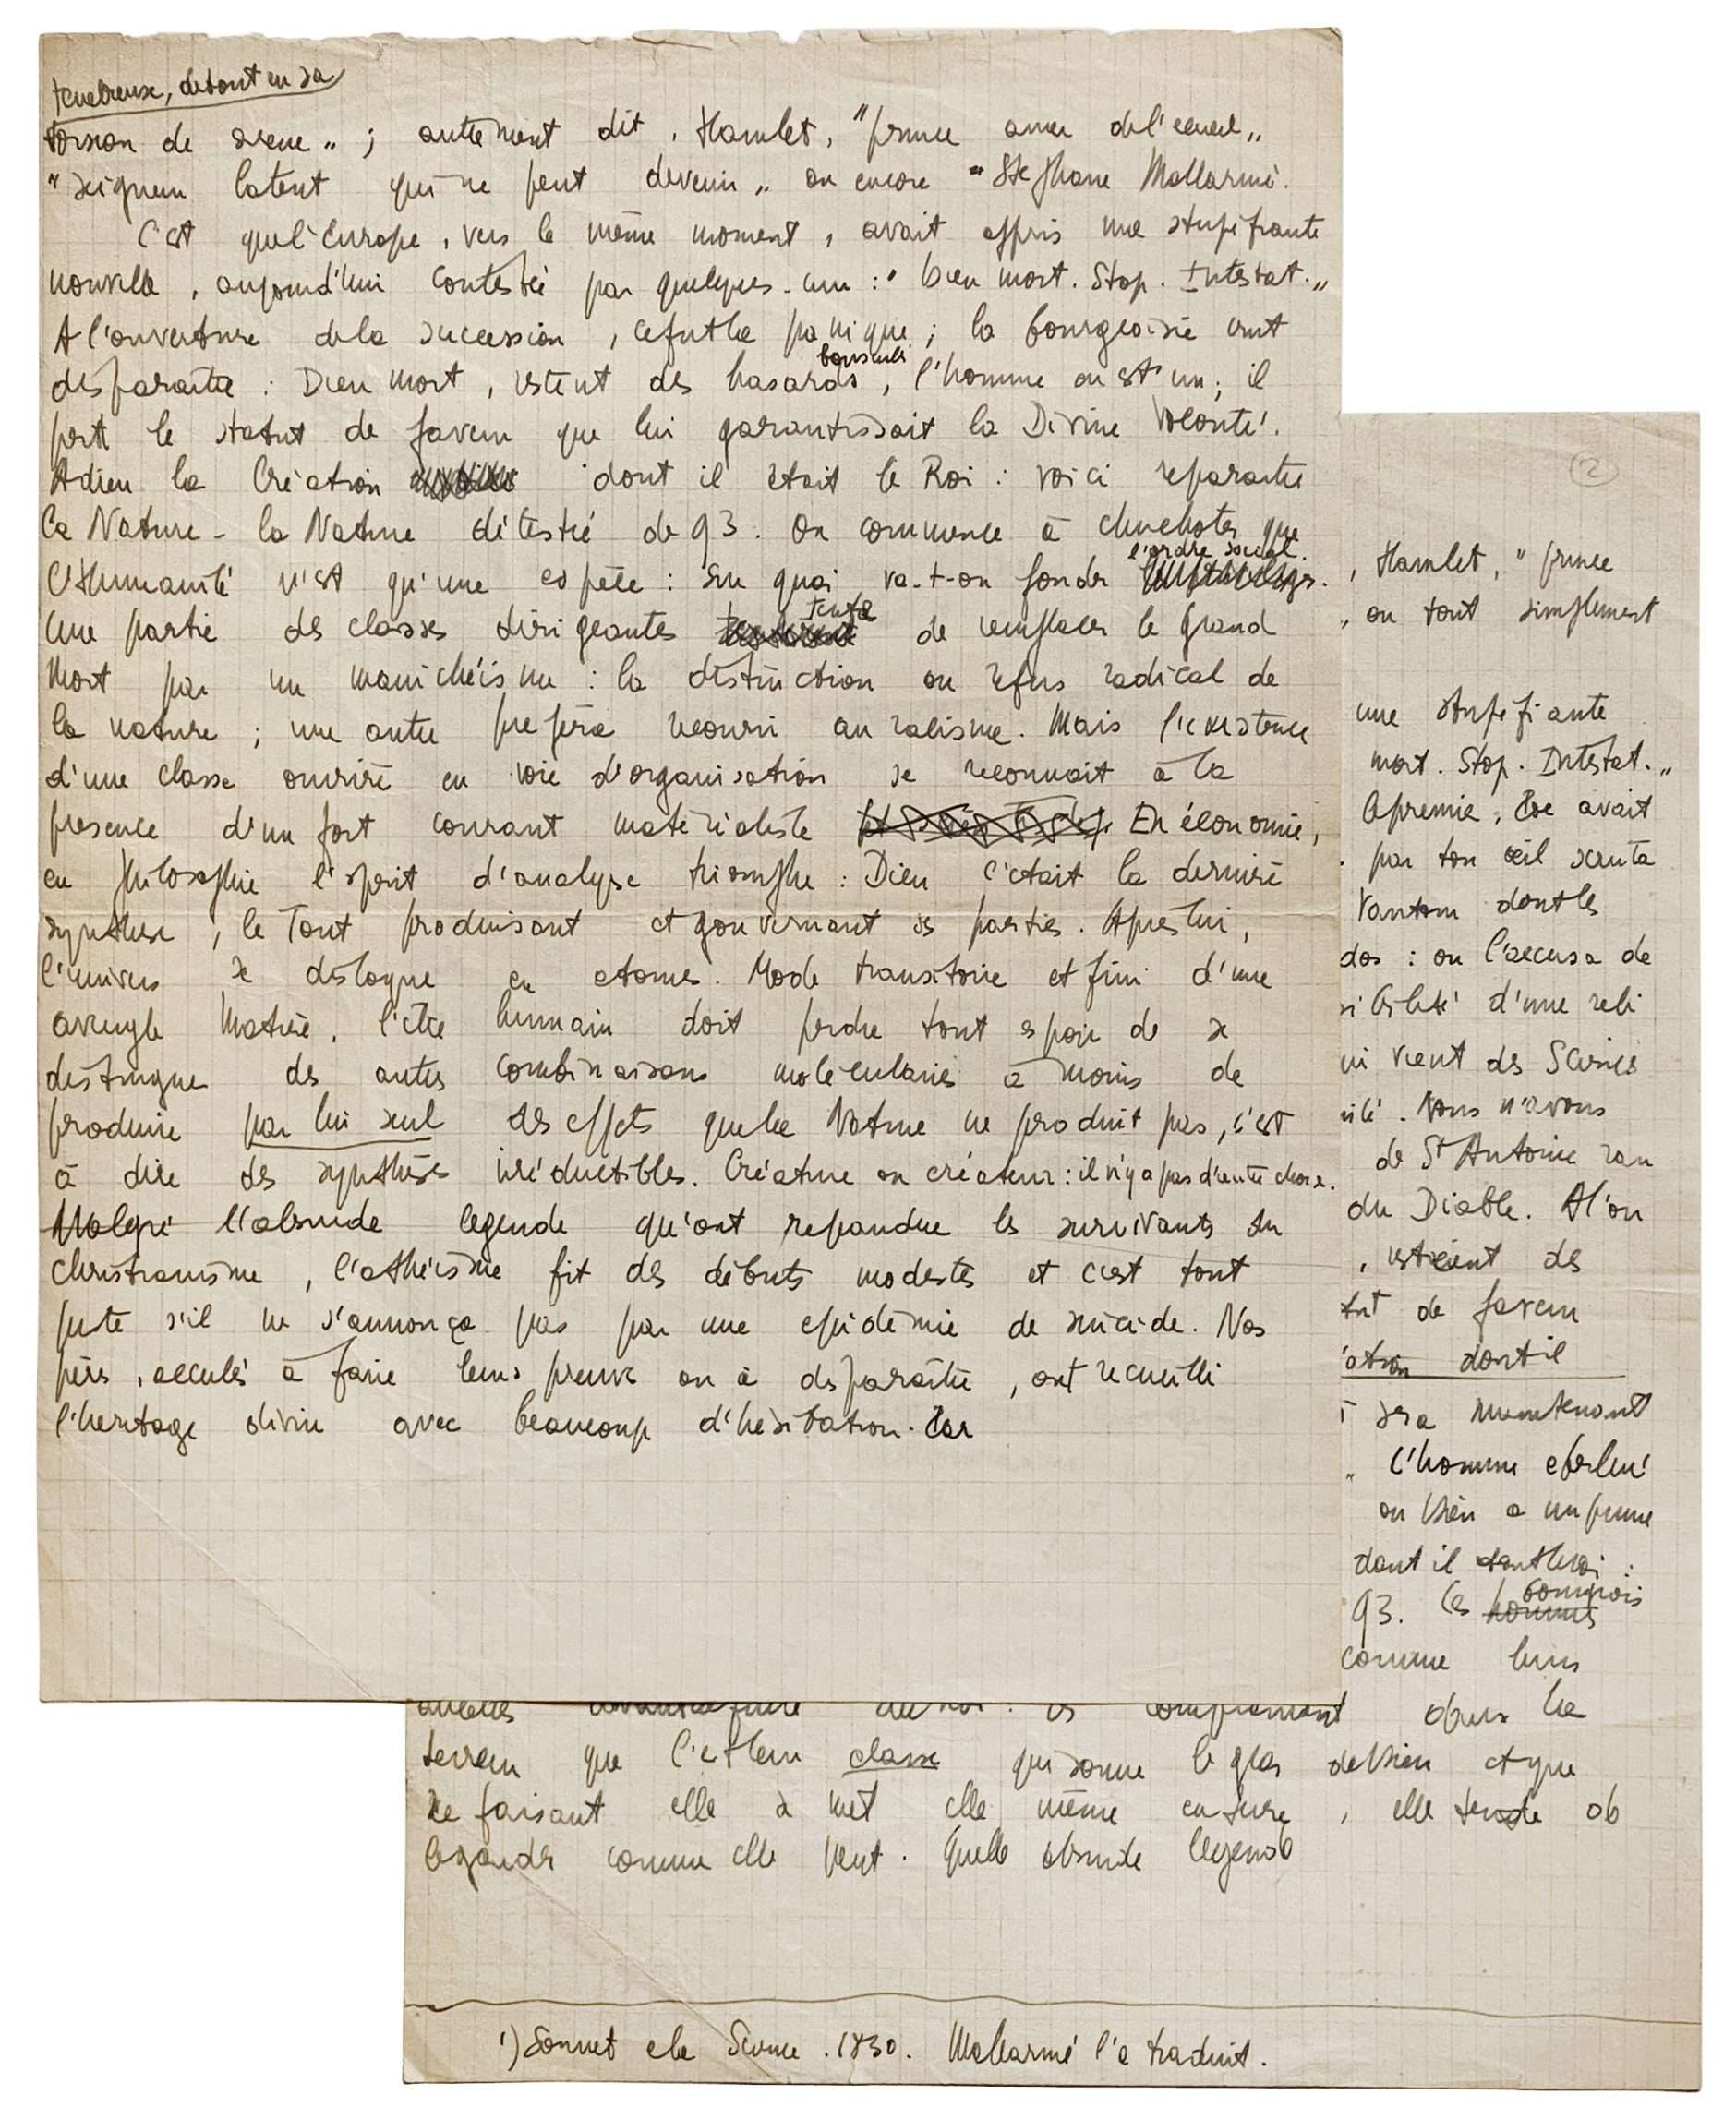 ténébreuse, debout en sa
torsion de sirène „ ; autrement dit, Hamlet, " prince amer de l'écueil „
" seigneur latent qui ne peut devenir „ ou encore " Stéphane Mallarmé.
C'est que l'Europe, vers le même moment, avait appris une stupéfiante
nouvelle, aujourd'hui contestée par quelques-uns : " Dieu mort. Stop. Intestat. „
A l'ouverture de la succession, ce fut la panique ; la bourgeoisie crut
disparaître : Dieu mort, restent des hasards, l'homme en est un ; il
perd le statut de faveur que lui garantissait la Divine Volonté.
Adieu la Création dont il était le Roi : voici reparaître
la Nature - la Nature détestée de 93. On commence à chuchoter que
l'Humanité n'est qu'une espèce : sur quoi va-t-on fonder l'ordre social.
Une partie des classes dirigeantes tenta de remplacer le grand
Mort par un manichéisme : la distinction ou refus radical de
la nature ; une autre préféra recourir au realisme. Mais l'existence
d'une classe ouvrière en voie d'organisation se reconnait à la
présence d'un fort courant matérialiste En économie,
en philosophie l'esprit d'analyse triomphe : Dieu c'était la dernière
synthèse, le Tout produisant et gouvernant ses parties. Après lui,
l'univers se disloque en atomes. Mode transitoire et fini d'une
aveugle Matière, l'être humain doit perdre tout espoir de se
distinguer des autres combinaisons moléculaires à moins de
produire par lui seul des effets que la Nature ne produit pas, c'est
à dire des synthèses irréductibles. Créature ou créateur : il n'y a pas d'autre chose.
Malgré l'absurde légende qu'ont répandue les survivants du
christianisme, l'athéisme fit des débuts modestes et c'est tout
juste s'il ne s'annonça pas par une épidémie de suicide. Nos
pères, acculés à faire leurs preuves ou à disparaître, ont recueilli
l'héritage divin avec beaucoup d'hésitation. Car
2
, Hamlet, " prince
, ou tout simplement
une stupéfiante
mort. Stop. Intestat. „
par ton œil scruta
dont les
dos : on l'accusa de
sibilité d'une reli
ui vient des Sciences
. Nous n'avons
de St Antoine
du Diable. A l'ou
, restaient des
tut de faveur
ation dont il
sera maintenant
„ l'homme
ou bien a
dont il était le roi :
93. Les hommes bourgeois
comme leurs
comprennent dans la
terreur que c'est leur classe qui sonne le glas de Dieu et que
ce faisant elle se met elle même en terre, elle
comme elle peut. Quelle absurde légende
1) Sonnet à la Science. 1830. Mallarmé l'a traduit.